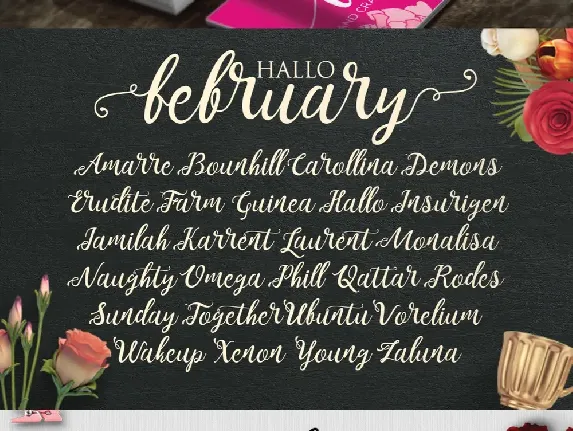 HALLO
bebruary
Amarre Bounhill Carollina Demons
Erudite Farm Guinea Hallo Insurigen
Jamilah Karrent Laurent Monalisa
Naughty Omega Phill Qattar Rodes
Sunday Together Ubuntu Vorelium
Wakeup Xenon Young Zaluna